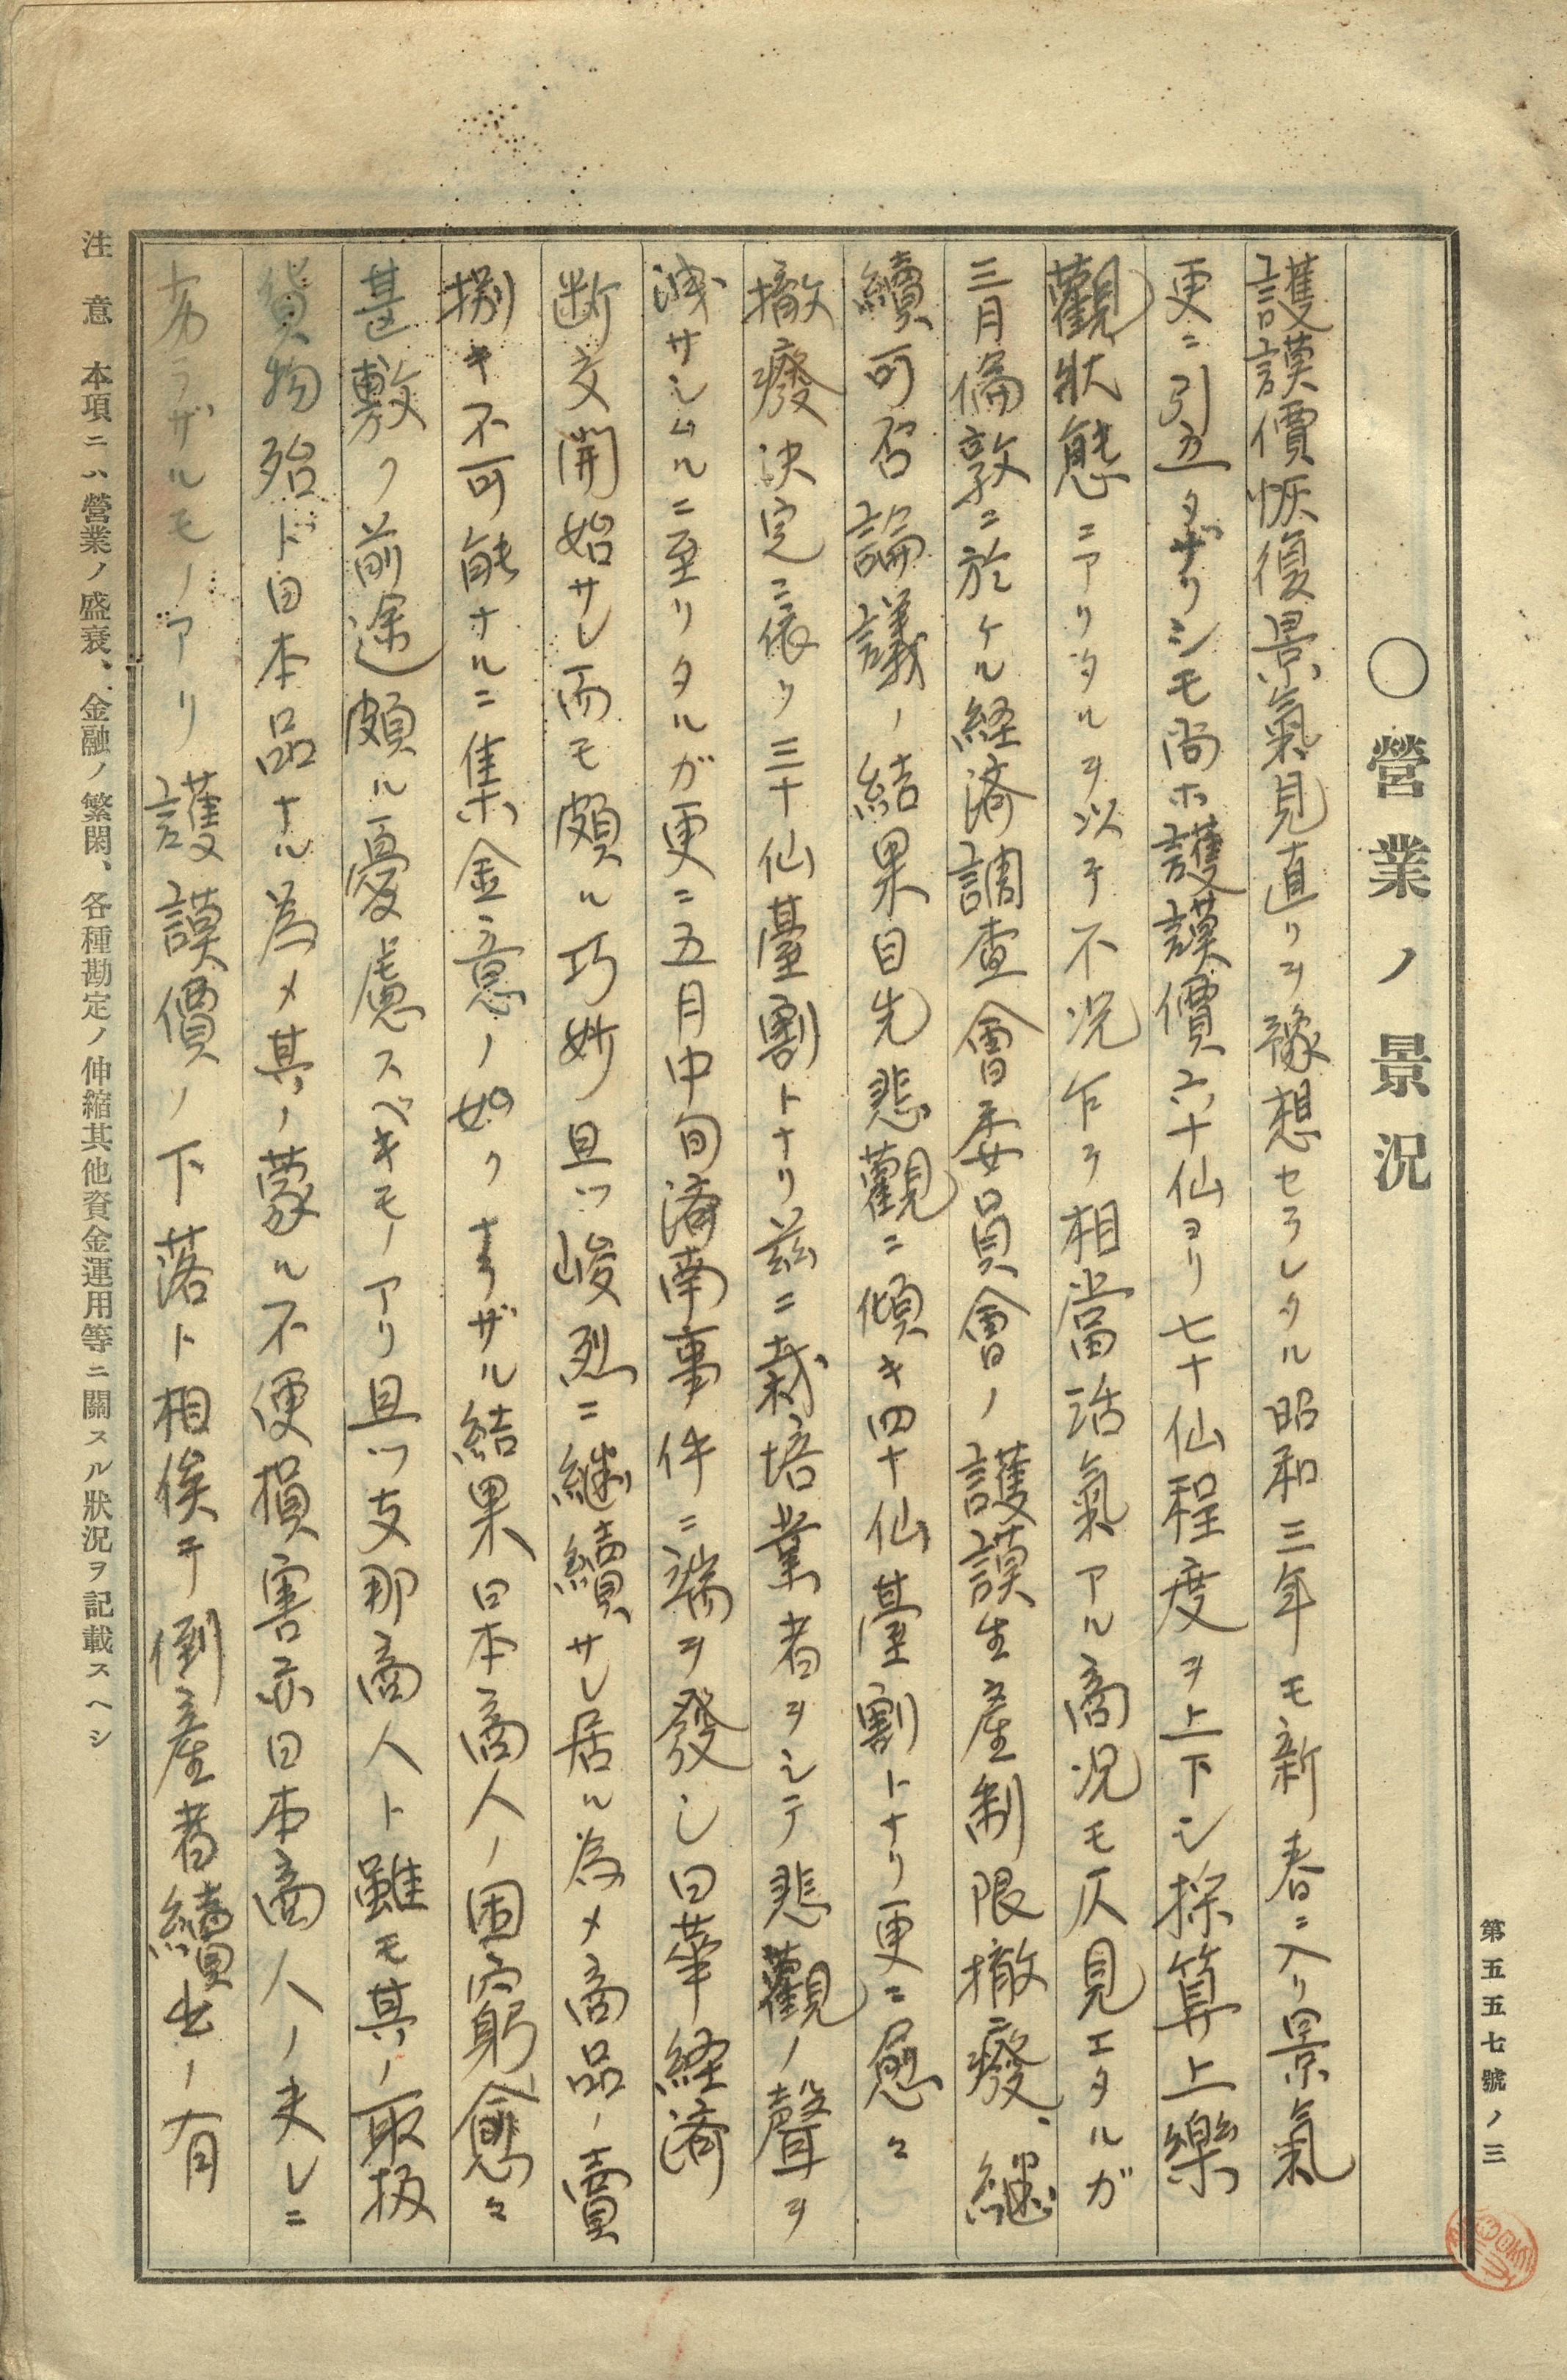 第五五七號ノ三
○營業ノ景況
護謨價恢復景氣見直リヲ豫想セラレタル昭和三年モ新春ニ入リ景氣
更ニ引立タザリシモ尚ホ護謨價六十仙ヨリ七十仙程度ヲ上下シ採算上樂
觀狀態ニアリタルヲ以テ不況乍ラ相當活氣アル商況モ仄見エタルガ
三月倫敦ニ於ケル経済調査會委員會ノ護謨生産制限撤廢、継
續可否論議ノ結果目先悲觀ニ傾キ四十仙臺割トナリ更ニ愈々
撤廢決定ニ依リ三十仙臺割トナリ茲ニ栽培業者ヲシテ悲觀ノ聲ヲ
洩サシムルニ至リタルガ更ニ五月中旬済南事件ニ端ヲ發シ日華経済
断交開始サレ而モ頗ル巧妙且ツ峻烈ニ継續サレ居ル為メ商品ノ賣
捌キ不可能ナルニ集金意ノ如クナラザル結果日本商人ノ困窮愈々
甚敷ク前途頗ル憂慮スベキモノアリ且ツ支那商人ト雖モ其ノ取扱
貨物殆ド日本品ナル為メ其ノ蒙ル不便損害亦日本商人ノ夫レニ
劣ラザルモノアリ護謨價ノ下落ト相俟テ倒産者續出ノ有
注意 本項ニハ營業ノ盛衰、金融ノ繁閑、各種勘定ノ伸縮其他資金運用等ニ關スル狀況ヲ記載スヘシ